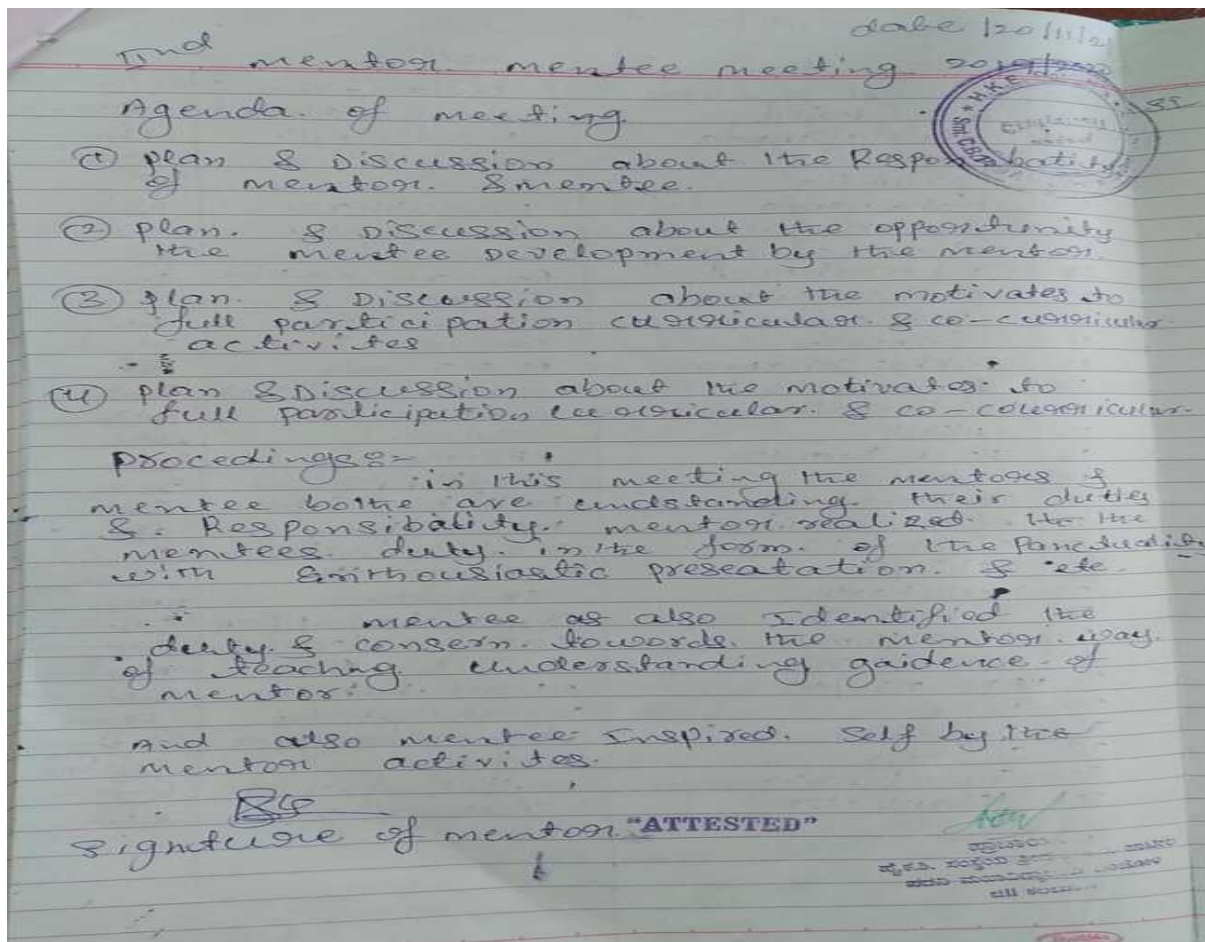 date /20/11/2
IInd mentor mentee meeting 2019/2020
Agenda. of meeting
① plan & Discussion about the Responsibality
of mentor. & mentee.
② plan. & Discussion about the opportunity
the mentee Development by the mentor.
③ plan. & Discussion about the motivates to
full participation curricular. & co-curricular
activites
④ plan & Discussion about the motivates to
full participation curricular. & co-courricular.
Procedings:-
in this meeting the mentors &
mentee bothe are undstanding their duties
& Responsibality. mentor realized. the
mentees duty. in the form. of the Panctuality
with Enthousiastic preseatation. & etc.
mentee as also Identified the
duty. & consern towords. the mentor way.
of teaching understanding gaidence of
mentor.
And also mentee Inspired. Self by the
mentor activites.
signature of mentor "ATTESTED"